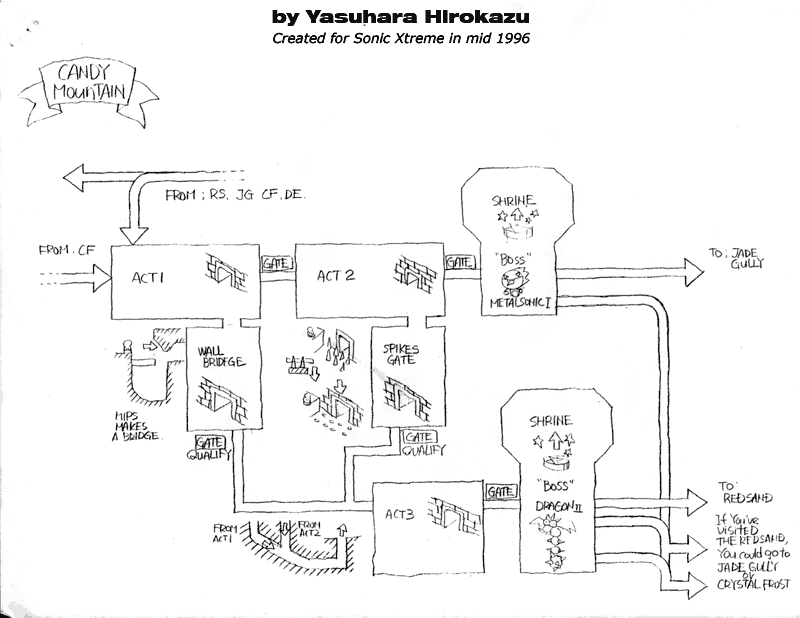 by Yasuhara Hirokazu
Created for Sonic Xtreme in mid 1996
CANDY
MOUNTAIN
FROM; RS, JG CF, DE.
FROM. CF
ACT1
GATE
ACT 2
GATE
SHRINE
"BOSS"
METALSONIC I
TO; JADE
GULLY
WALL
BRIDGE
SPIKES
GATE
HIPS
MAKES
A BRIDGE.
GATE
QUALIFY
GATE
QUALIFY
SHRINE
"BOSS"
DRAGON II
GATE
ACT3
FROM
ACT1
FROM
ACT2
TO
REDSAND
If You've
VISITED
THE REDSAND,
You could go to
JADE GULLY
or
CRYSTAL FROST